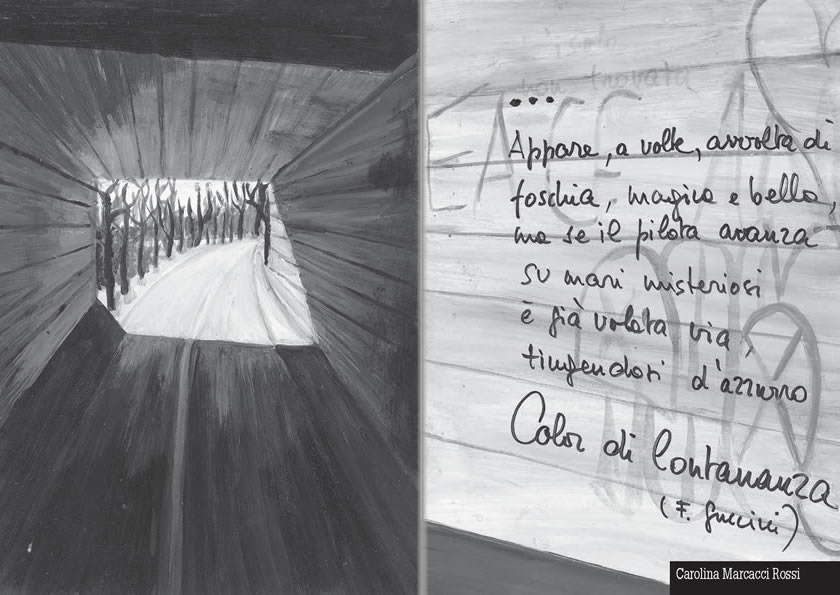 isola
non trovata
...
Appare, a volte, avvolta di
foschia, magica e bella,
ma se il pilota avanza
su mari misteriosi
è già volata via,
tingendosi d'azzurro
Color di lontananza
(F. Guccini)
Carolina Marcacci Rossi